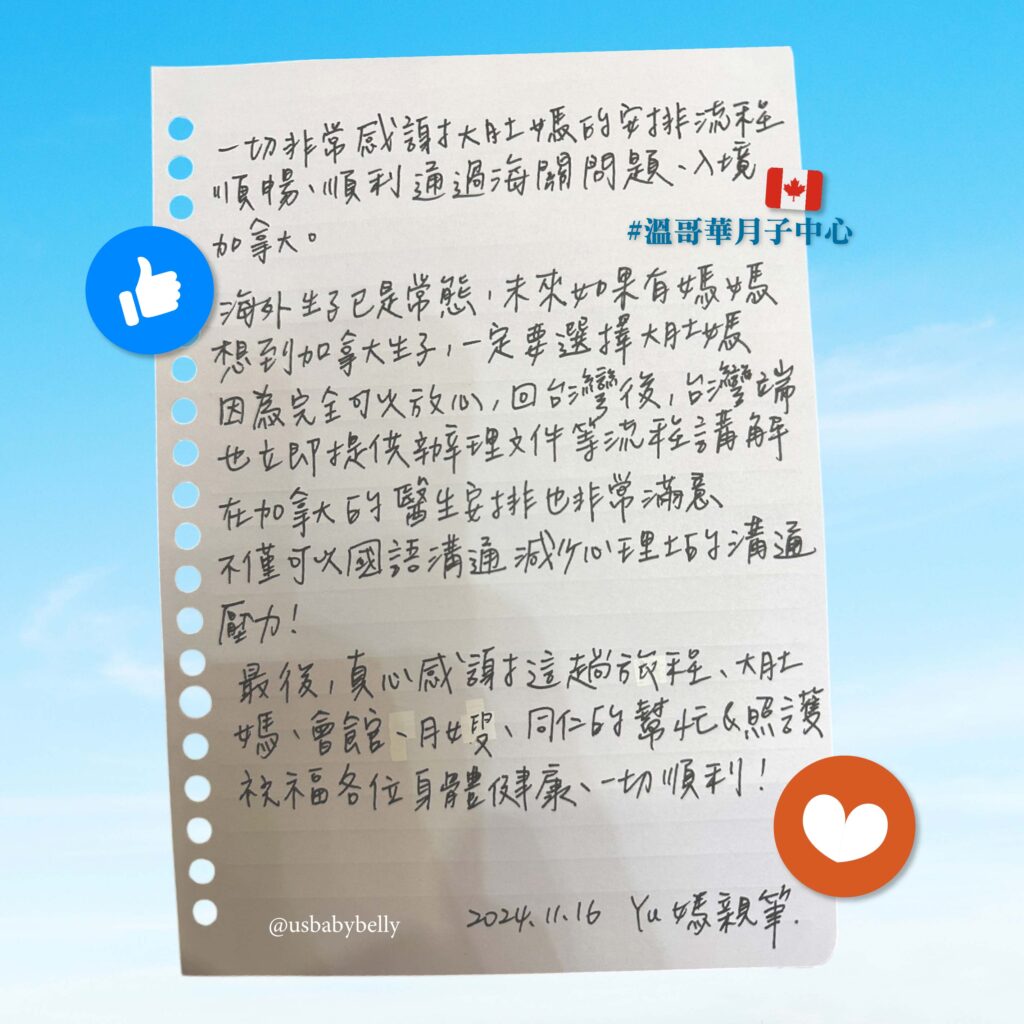 一切非常感謝大肚媽的安排流程
順暢、順利通過海關問題、入境
加拿大。
#溫哥華月子中心
海外生子已是常態，未來如果有媽媽
想到加拿大生子，一定要選擇大肚媽
因為完全可以放心，回台灣後，台灣端
也立即提供辦理文件等流程講解
在加拿大的醫生安排也非常滿意
不僅可以國語溝通減少心理上的溝通
壓力！
最後，真心感謝這趟旅程、大肚
媽、會館、月嫂、同仁的幫忙&照護
祝福各位身體健康、一切順利！
2024.11.16 Yu媽親筆.
@usbabybelly